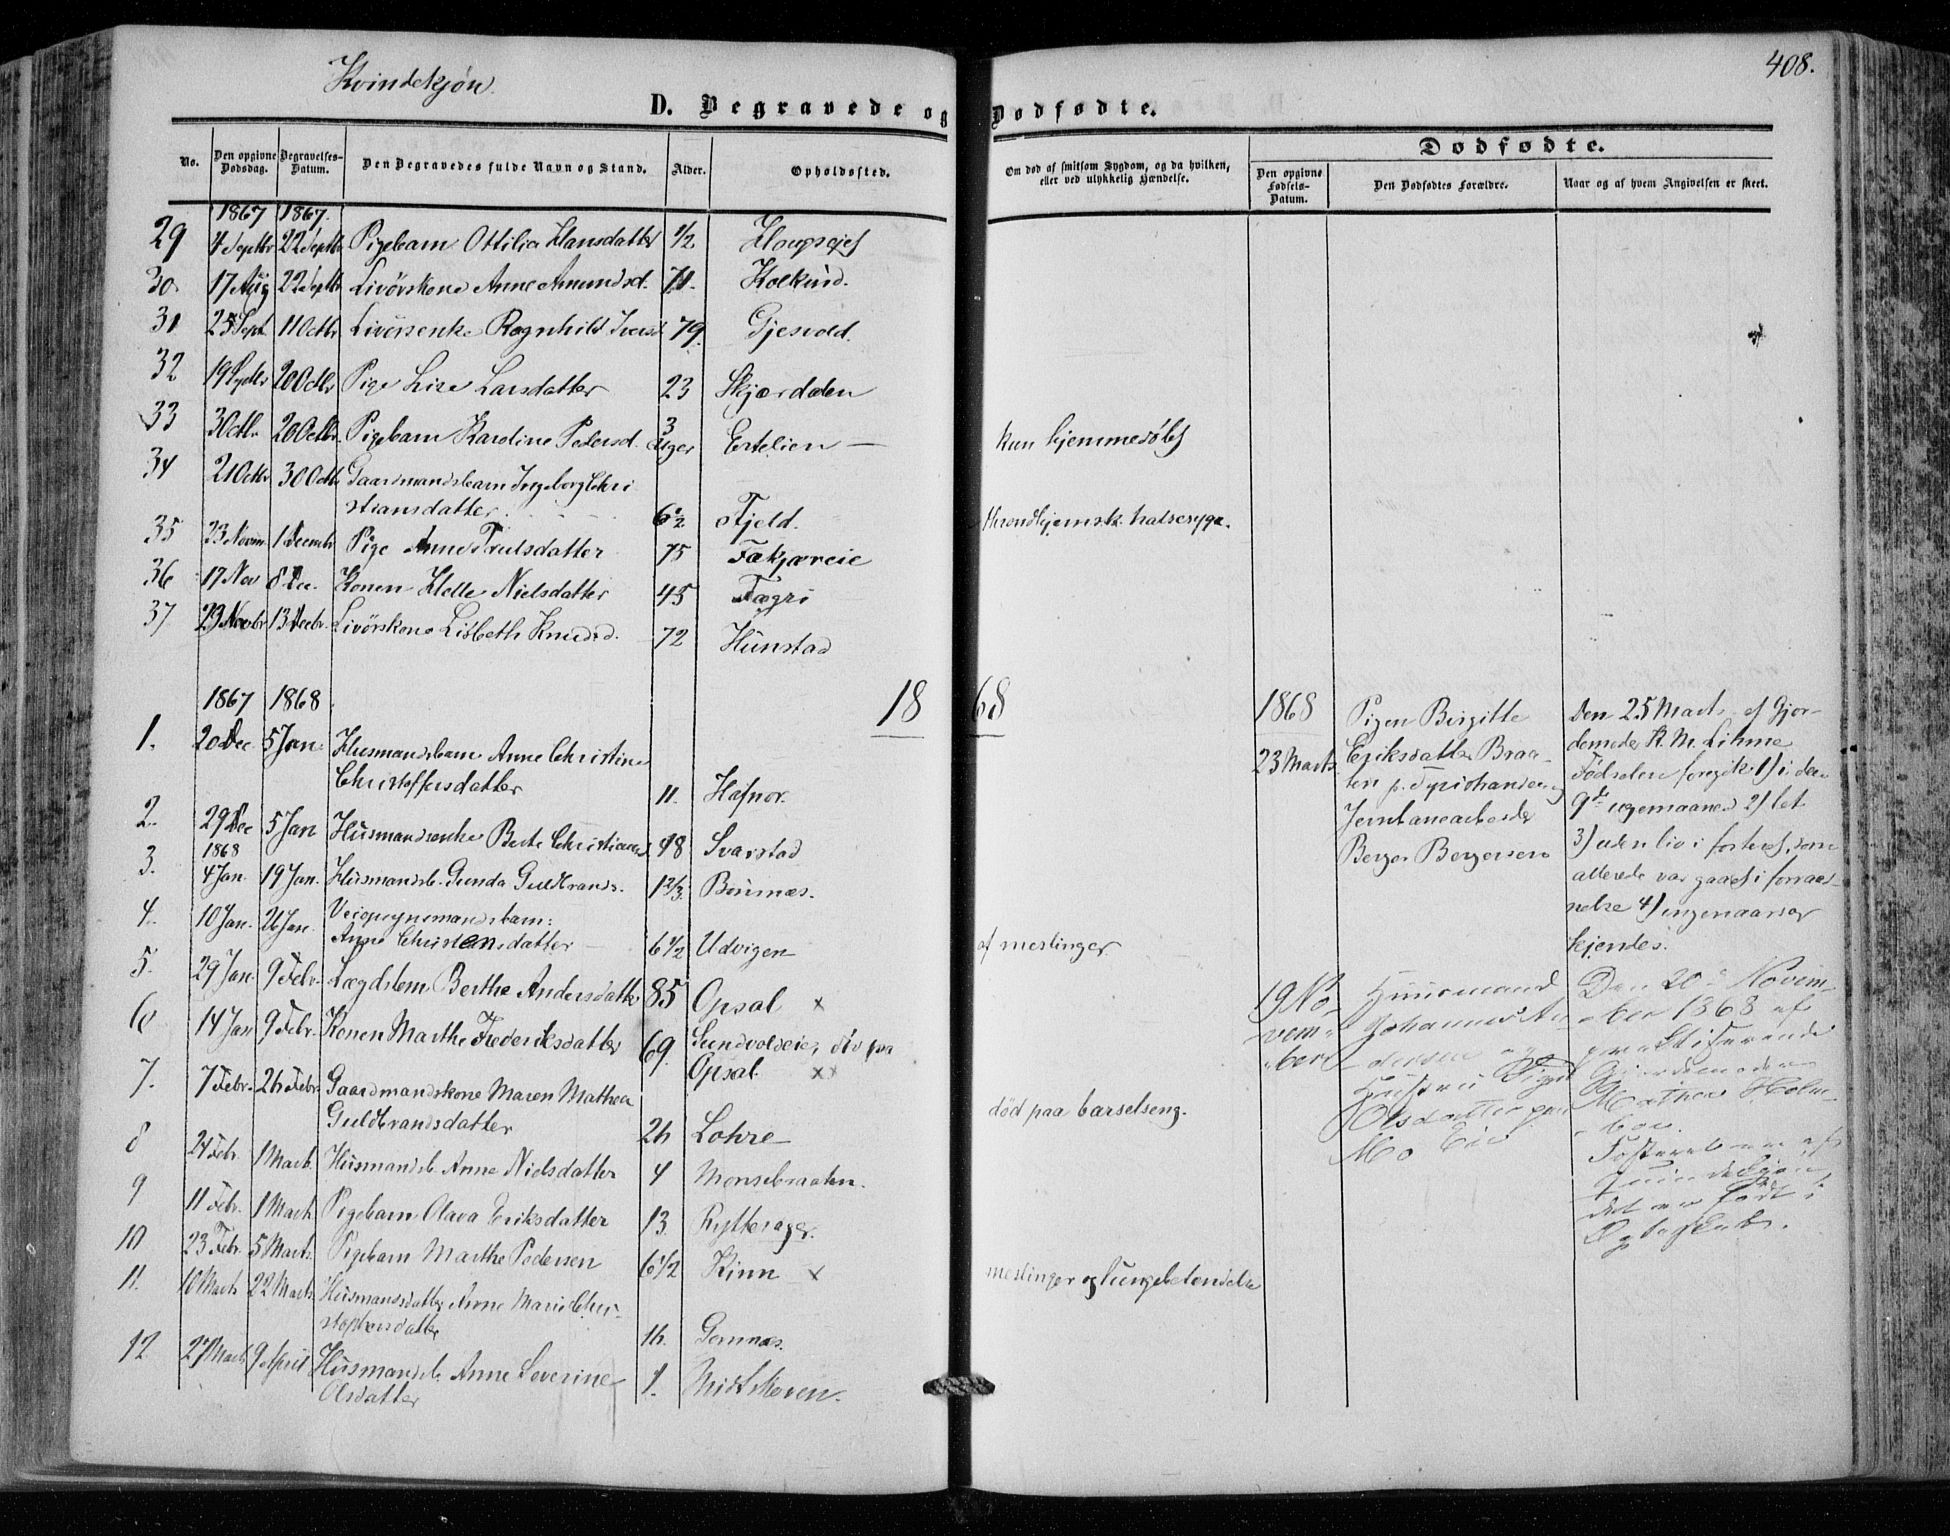 408.
Kvindekjøn.
D. Begravede og Dødfødte.
No.
Den opgivne Dødsdag.
Begravelses-Datum.
Den Begravedes fulde Navn og Stand.
Alder.
Opholdssted.
Om død af smitsom Sygdom, og da hvilken, eller ved ulykkelig Hændelse.
Dødfødte.
Den opgivne Fødsels-Datum.
Den Dødfødtes Forældre.
Naar og af hvem Angivelsen er skeet.
1867 1867.
29 4 Septbr 22 Septbr Pigebarn Ottilia Hansdatter 1/2
30. 17 Aug 22 Septbr Livörskone Anne Amundsd. 71. Kolkind.
31 25 Sept. 11 Octbr Livörsenke Ragnhild Iversd 79. Gjesvold.
32 19 Septbr 20 Octbr Pige Lise Larsdatter 23 Skjærdalen
33 3 Octbr 20 Octbr. Pigebarn Karoline Pedersd. 3 Uger Ertelien — kun hjemmedøbt
34 21 Octbr 30 Octbr Gaardmandsbarn Ingeborg Chri
stiansdatter. 6 1/2 Fjeld. throndhjemsk halsesyge.
35 23 Novm 1 Decembr Pige Anne Trulsdatter 75 Fækjæreie
36 17 Nov 8 Dec. Konen Helle Nielsdatter 45 Fægri
37 23 Novbr 13 Decbr. Livörskone Lisbeth Knudsd. 72 Hunstad
1867 1868
1868
1. 20 Dec. 5 Jan. Husmandsbarn Anne Christine
Christoffersdatter 11. Hafnor.
2. 29 Dec 5 Jan Husmandsenke Berte Christiansd 48 Svarstad
1868
3. 4 Jan. 19 Jan. Husmandsb. Gunda Guldbrands. 1 2/3. Bönsnæs.
4. 10 Jan. 26 Jan. barn:
Anne Christensdatter — 6 1/2 Udvigen af meslinger.
5. 29 Jan. 9 Febr. Lægdslem Berthe Andersdatter 85 Opsal x
6 14 Jan 9 Febr. Konen Marthe Frederiksdatter 69. Sundvoldeie, div pa
Opsal. x
7. 7 Febr. 26 Febr. Gaardmandskone Maren Mathea
Guldbrandsdatter 26 Lohre død paa barselseng.
8 24 Febr. 1 Marts. Husmandsb. Anne Nielsdatter 4 Monsebraaten.
9 11 Febr. 1 Marts Pigebarn Olava Eriksdatter 13. Rytterager.
10 23 Febr. 5 Marts Pigebarn Marthe Pedersen 6 1/2 Kinn x meslinger og lungebetendelse
11. 10 Marts 22 Marts Husmandsdatter Anne Marie Chri-
stophersdatter 16. Gomnæs.
12 27 Marts 9 April Husmandsb. Anne Severine
Olsdatter 1. Midtskoven.
1868
23 Marts
Pigen Birgitte
Eriksdatter Braa-
ten
Jernbanearbeider
Berger Bergersen
Den 25 Marts af Gjor-
demoder K. M. Lihme
Fødselen foregik 1) i den
9de ugemaaned 2) let
3) uden liv i fosteret, som
allerede var gaaet i forraad-
nelse 4) ingen aarsag
kjendes.
19 No-
vem-
ber
Huusmand
Johannes An-
dersen og
Hustru Signe
Olsdatter paa
Mo Eie
Den 20de Novem-
ber 1868 af
praktiserende
Gjordemoder
Mathea Holm-
boe.
Fosteret var af
Quindekjön,
det er født i